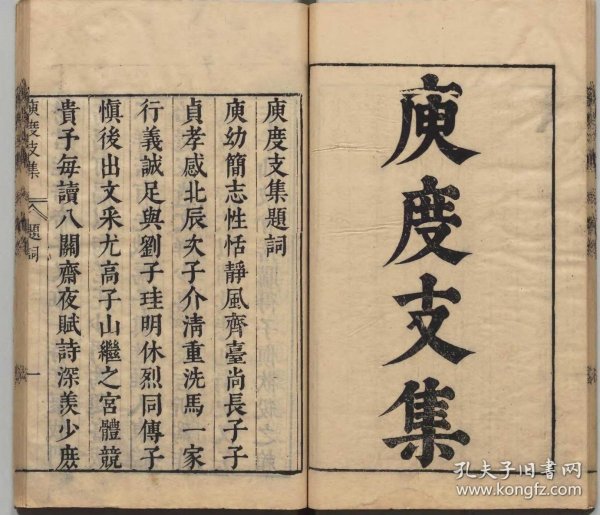 庾度支集
庾度支集題詞
庾幼簡志性恬靜風齊臺尚長子子
貞孝感北辰次子介清重洗馬一家
行義誠足與劉子珪明休烈同傳子
慎後出文采尤高子山繼之宮體競
貴予每讀八關齋夜賦詩深羨少庶
庾度支集
題詞
一
孔夫子旧書网
www.kongfz.com